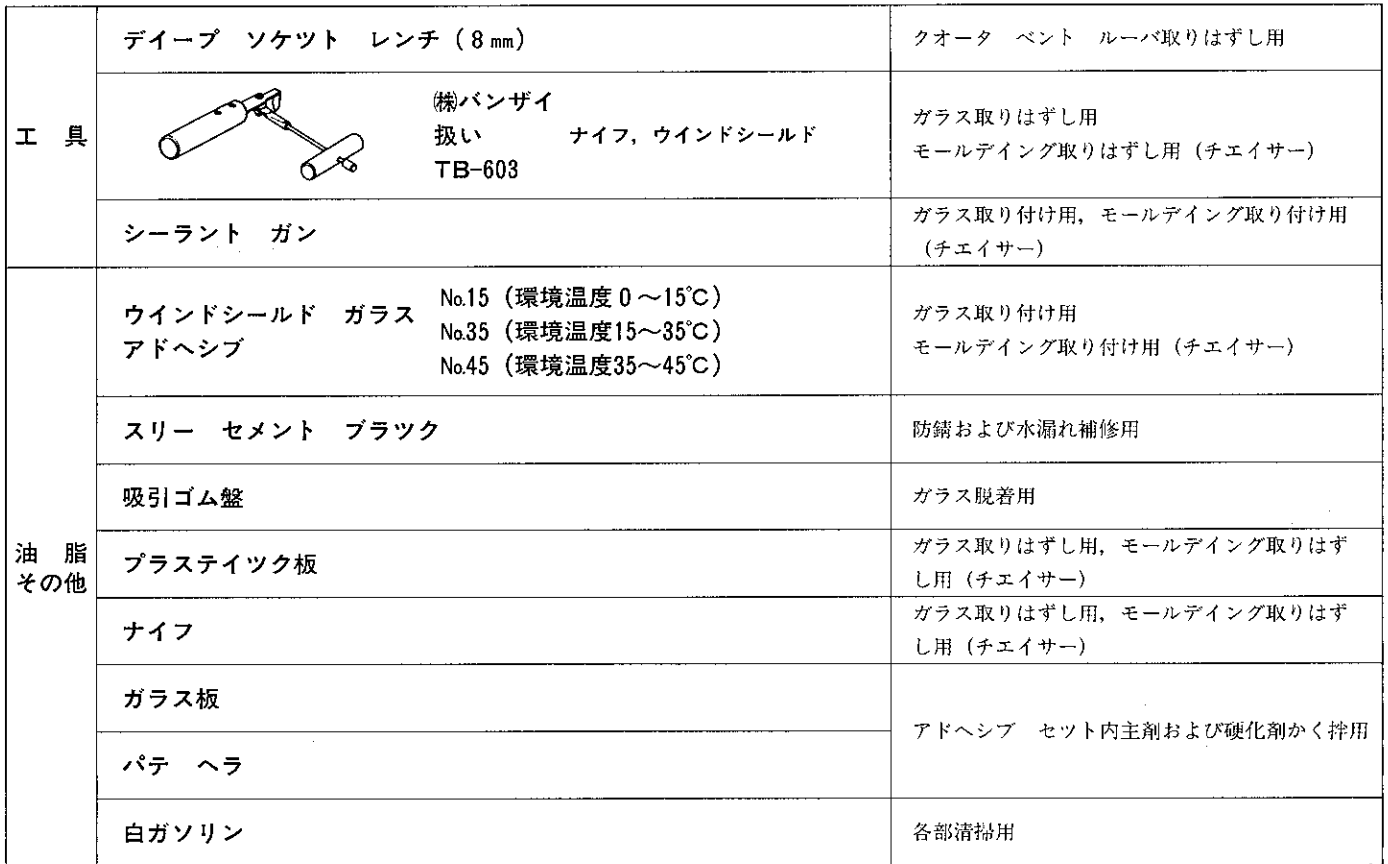 工 具
デイープ ソケツト レンチ（8㎜）
クオータ ベント ルーバ取りはずし用
㈱バンザイ
扱い ナイフ，ウインドシールド
TB-603
ガラス取りはずし用
モールデイング取りはずし用（チエイサー）
シーラント ガン
ガラス取り付け用，モールデイング取り付け用
（チエイサー）
油 脂
その他
ウインドシールド ガラス
アドヘシブ
№15（環境温度0～15℃）
№35（環境温度15～35℃）
№45（環境温度35～45℃）
ガラス取り付け用
モールデイング取り付け用（チエイサー）
スリー セメント ブラツク
防錆および水漏れ補修用
吸引ゴム盤
ガラス脱着用
プラステイツク板
ガラス取りはずし用，モールデイング取りはず
し用（チエイサー）
ナイフ
ガラス取りはずし用，モールデイング取りはず
し用（チエイサー）
ガラス板
パテ ヘラ
アドヘシブ セツト内主剤および硬化剤かく拌用
白ガソリン
各部清掃用